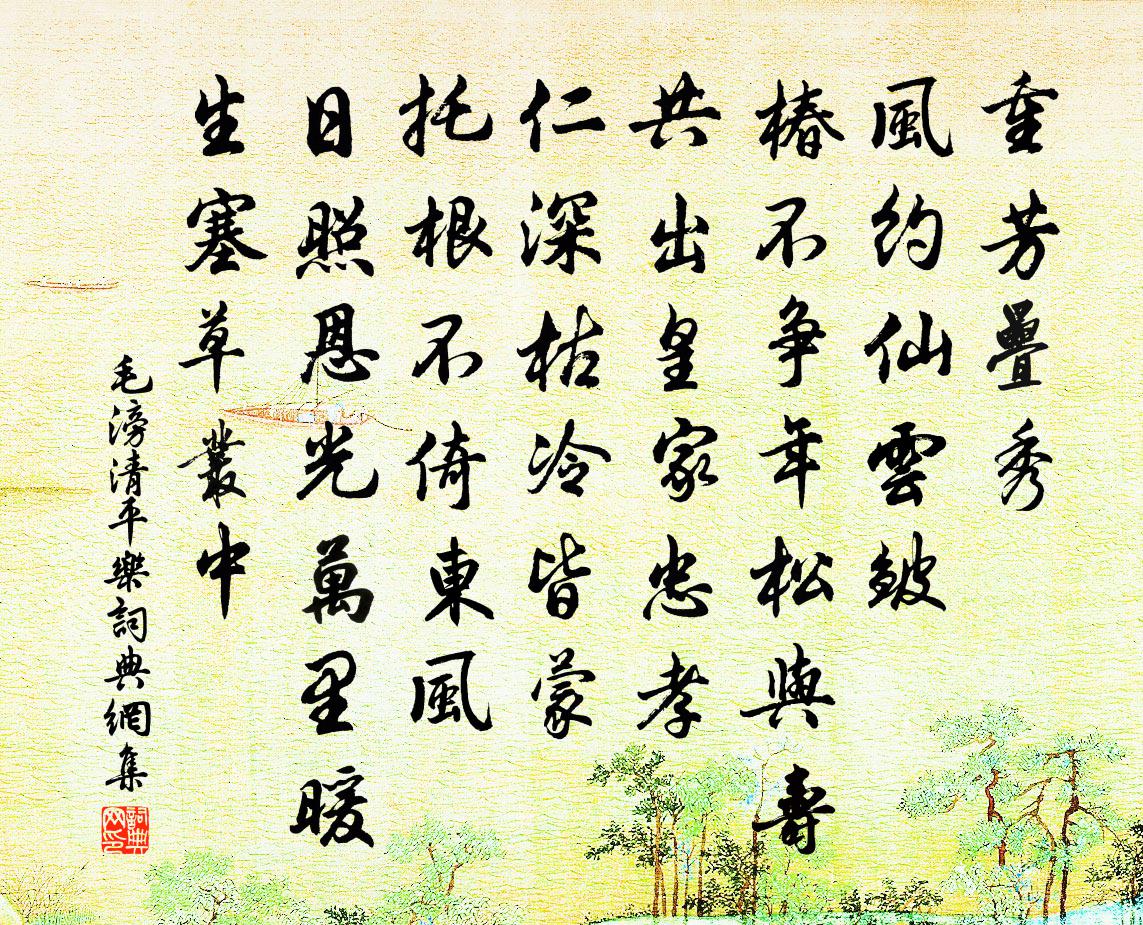 重芳疊秀
風約仙雲皴
椿不爭年松與壽
共出皇家忠孝
仁深枯冷皆蒙
托根不倚東風
日照恩光萬里暖
生塞草叢中
毛滂清平樂詞典網集
詞典网印